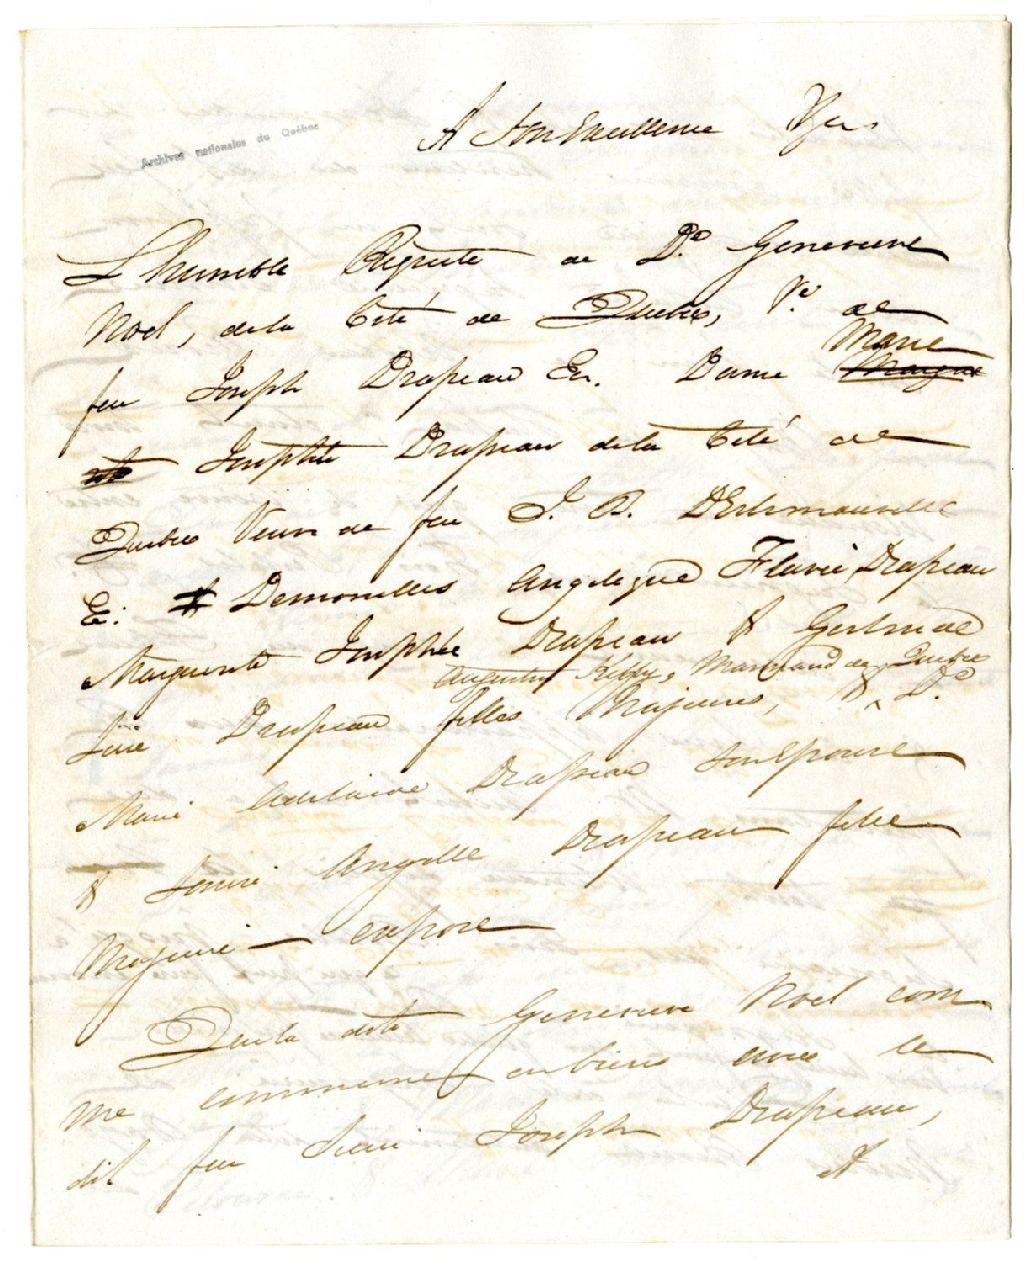 Archives nationales du Québec
A Son Excellence &c
L'humble Requete de De. Genevieve
Noel, de la Cité de Quebec, Ve. de
feu Joseph Drapeau Ec. Dame Marie
Josephte Drapeau de la Cité de
Quebec Veuve de feu J. B. D'Estimauville
E. & Demoiselles Angelique Flavie Drapeau
Marguerite Josephte Drapeau & Gertrude
Augustin Kelly, Marchand de Quebec
Drapeau filles Majeures, & De.
Marie Adelaide Drapeau Son Epouse
& Louise Angelle Drapeau fille
Majeure expose
Que la dite Genevieve Noel com
me commune en biens avec le
dit feu Sieur Joseph Drapeau,
A